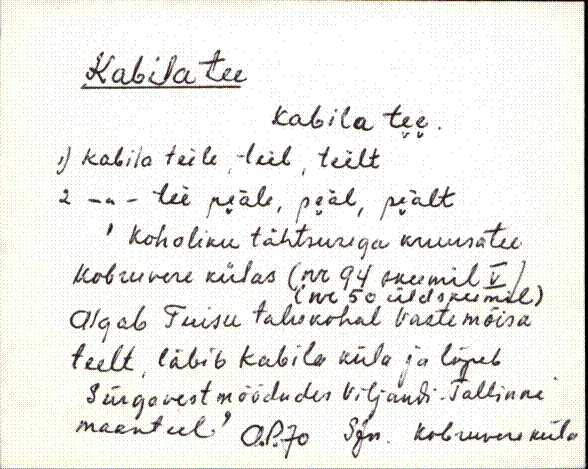 Kabila tee
Kabila tee.
1) Kabila teile, -teel, teilt
2 -"- tee peäle, peäl, peält
' Koholiku tähtsusega kruusatee
Kobruvere külas (nr 94 skeemil V)
(nr 50 üldskeemil)
Algab Tuisu talu kohal Vastemõisa
teelt, läbib Kabila küla ja lõpeb
Sürgavest möödudes Viljandi-Tallinna
maanteel.' O.P.70 Sjn. Kobruvere küla